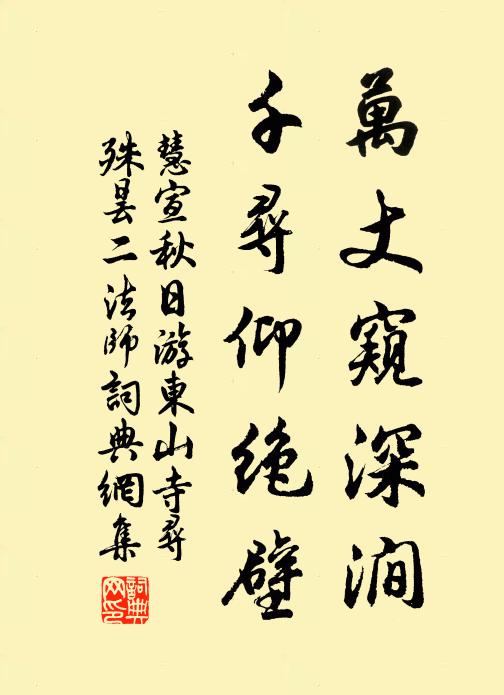 萬丈窺深澗
千尋仰絕壁
慧宣秋日游東山寺尋
殊曇二法師詞典網集
詞典網印